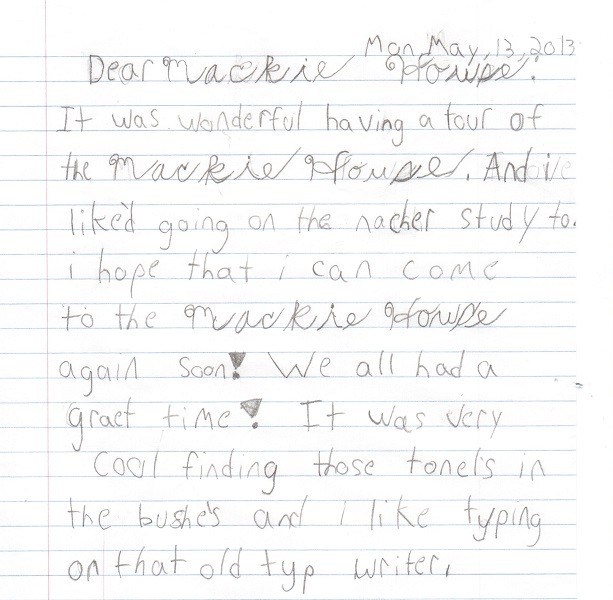 Mon, May, 13, 2013
Dear Mackie House.
It was wonderful having a tour of
the Mackie House. And i've
like'd going on the nacher study to.
i hope that i can come
to the Mackie House
again soon! We all had a
graet time! It was very
cool finding those tonel's in
the bushe's and i like typing
on that old typ writer,